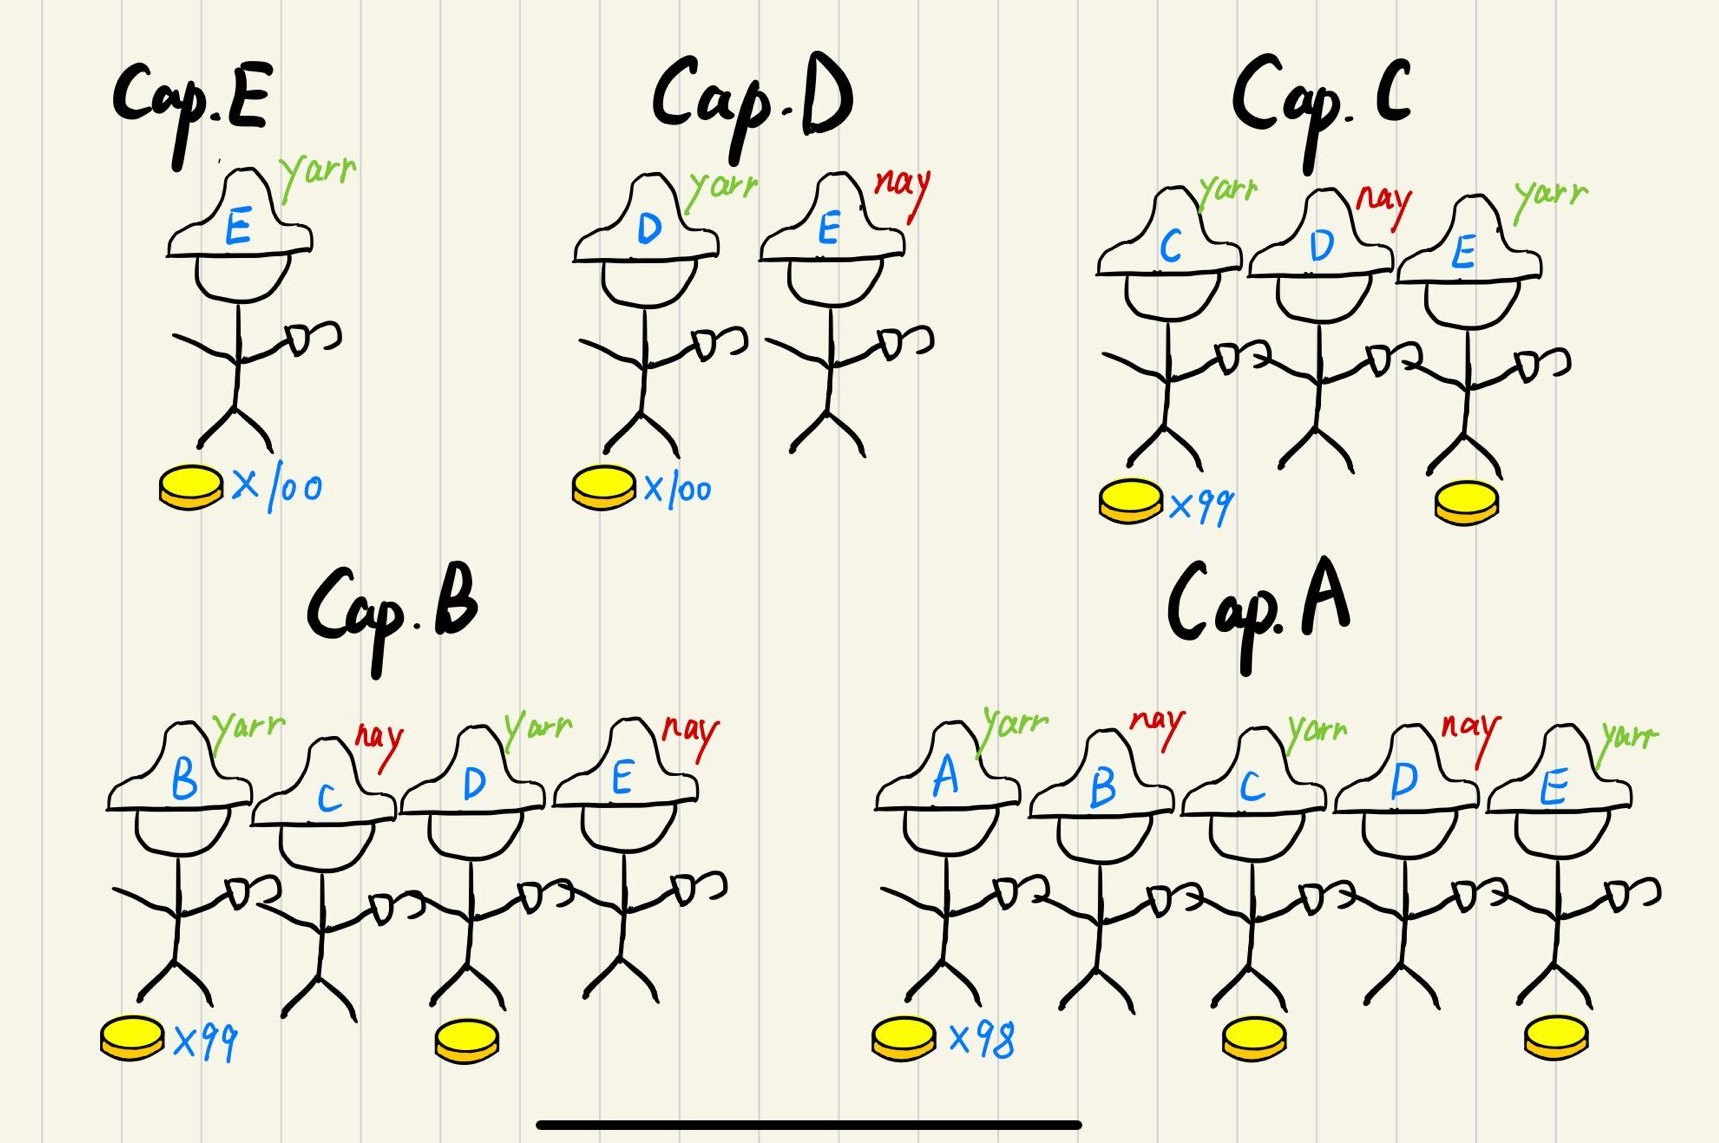 Cap. E
yarr
E
x 100
Cap. D
yarr nay
D E
x 100
Cap. C
yarr nay yarr
C D E
x 99
Cap. B
yarr nay yarr nay
B C D E
x 99
Cap. A
yarr nay yarr nay yarr
A B C D E
x 98